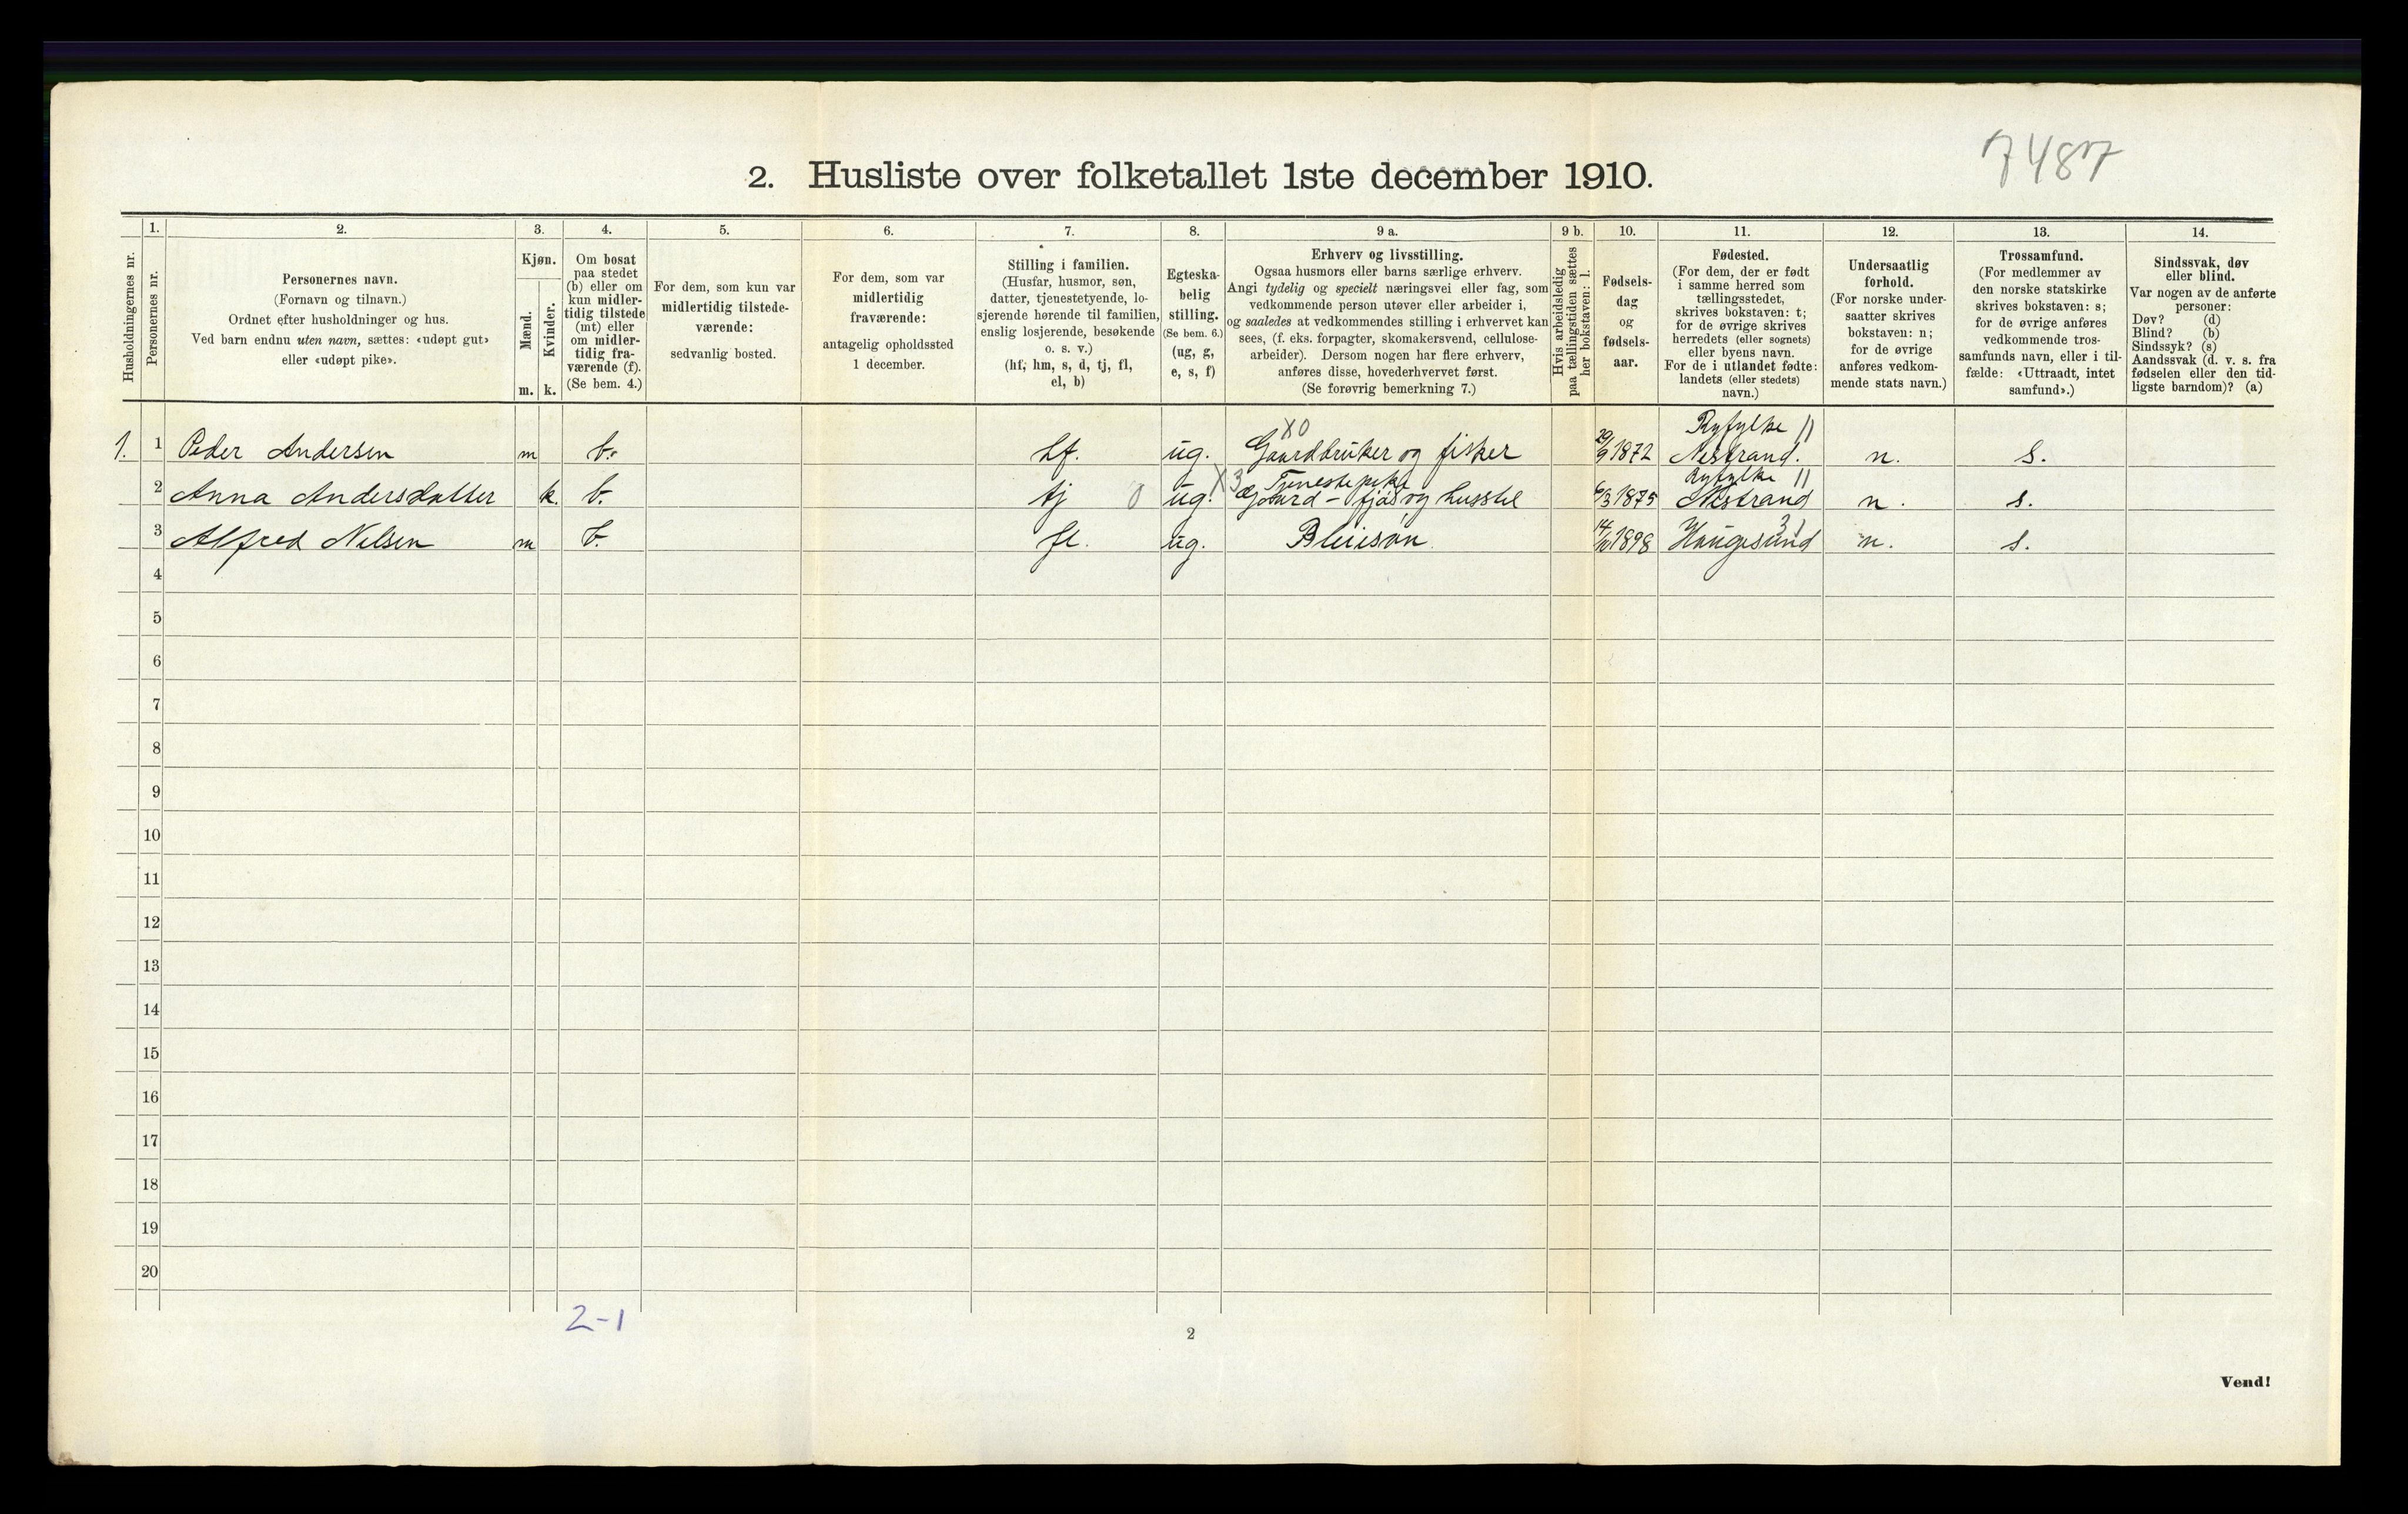 7487
2. Husliste over folketallet 1ste december 1910.
Husholdningernes nr.
1.
Personernes nr.
2.
Personernes navn.
(Fornavn og tilnavn.)
Ordnet efter husholdninger og hus.
Ved barn endnu uten navn, sættes: «udøpt gut»
eller «udøpt pike».
3.
Kjøn.
Mænd.
m.
Kvinder.
k.
4.
Om bosat
paa stedet
(b) eller om
kun midler-
tidig tilstede
(mt) eller
om midler-
tidig fra-
værende (f).
(Se bem. 4.)
5.
For dem, som kun var
midlertidig tilstede-
værende:
sedvanlig bosted.
6.
For dem, som var
midlertidig
fraværende:
antagelig opholdssted
1 december.
7.
Stilling i familien.
(Husfar, husmor, søn,
datter, tjenestetyende, lo-
sjerende hørende til familien,
enslig losjerende, besøkende
o. s. v.)
(hf, hm, s, d, tj, fl,
el, b)
8.
Egteska-
belig
stilling.
(Se bem. 6.)
(ug, g,
e, s, f)
9 a.
Erhverv og livsstilling.
Ogsaa husmors eller barns særlige erhverv.
Angi tydelig og specielt næringsvei eller fag, som
vedkommende person utøver eller arbeider i,
og saaledes at vedkommendes stilling i erhvervet kan
sees, (f. eks. forpagter, skomakersvend, cellulose-
arbeider). Dersom nogen har flere erhverv,
anføres disse, hovederhvervet først.
(Se forøvrig bemerkning 7.)
9 b.
Hvis arbeidsledig
paa tællingstiden sættes
her bokstaven: l.
10.
Fødsels-
dag
og
fødsels-
aar.
11.
Fødested.
(For dem, der er født
i samme herred som
tællingsstedet,
skrives bokstaven: t;
for de øvrige skrives
herredets (eller sognets)
eller byens navn.
For de i utlandet fødte:
landets (eller stedets)
navn.)
12.
Undersaatlig
forhold.
(For norske under-
saatter skrives
bokstaven: n;
for de øvrige
anføres vedkom-
mende stats navn.)
13.
Trossamfund.
(For medlemmer av
den norske statskirke
skrives bokstaven: s;
for de øvrige anføres
vedkommende tros-
samfunds navn, eller i til-
fælde: «Uttraadt, intet
samfund».)
14.
Sindssvak, døv
eller blind.
Var nogen av de anførte
personer:
Døv? (d)
Blind? (b)
Sindssyk? (s)
Aandssvak (d. v. s. fra
fødselen eller den tid-
ligste barndom)? (a)
X0 Ryfylke 11
1. 1 Peder Andersen m b. hf. ug. Gaardbruker og fisker 29/9 1872 Nestrand. n. s.
X3 Tjenestepyke Ryfylke 11
2 Anna Andersdatter k. b. tj 0 ug. Gaard- fjøs og husstel 6/3 1875 Nestrand n. s.
31
3 Alfred Nelsen m b. fl. ug. 14/10 1898 Haugesund n. s.
4
5
6
7
8
9
10
11
12
13
14
15
16
17
18
19
20
2-1
2
Vend!